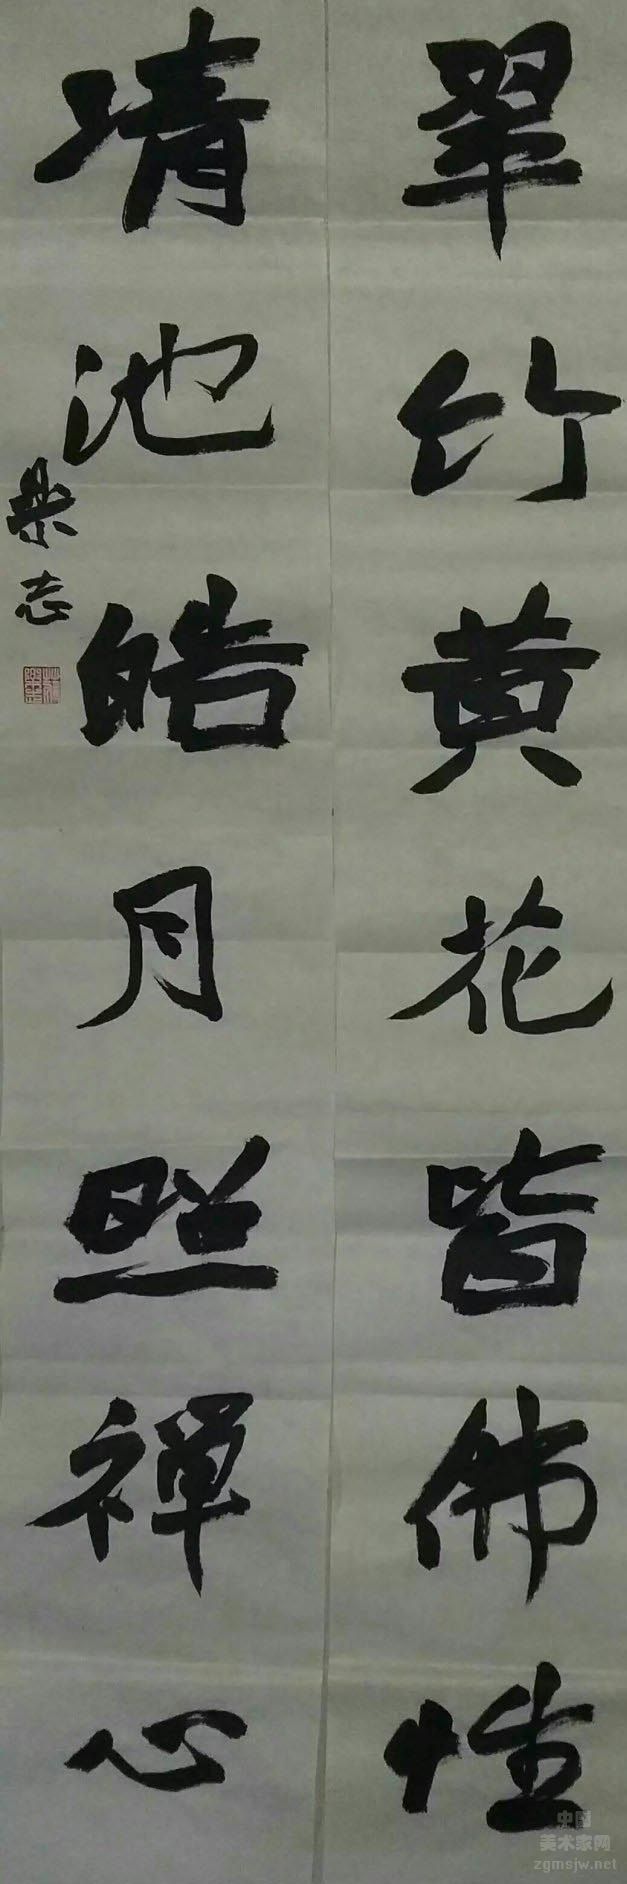 翠竹黄花皆佛性
清池皓月照禅心
乐志
中国
美术家网
zgmsjw.net